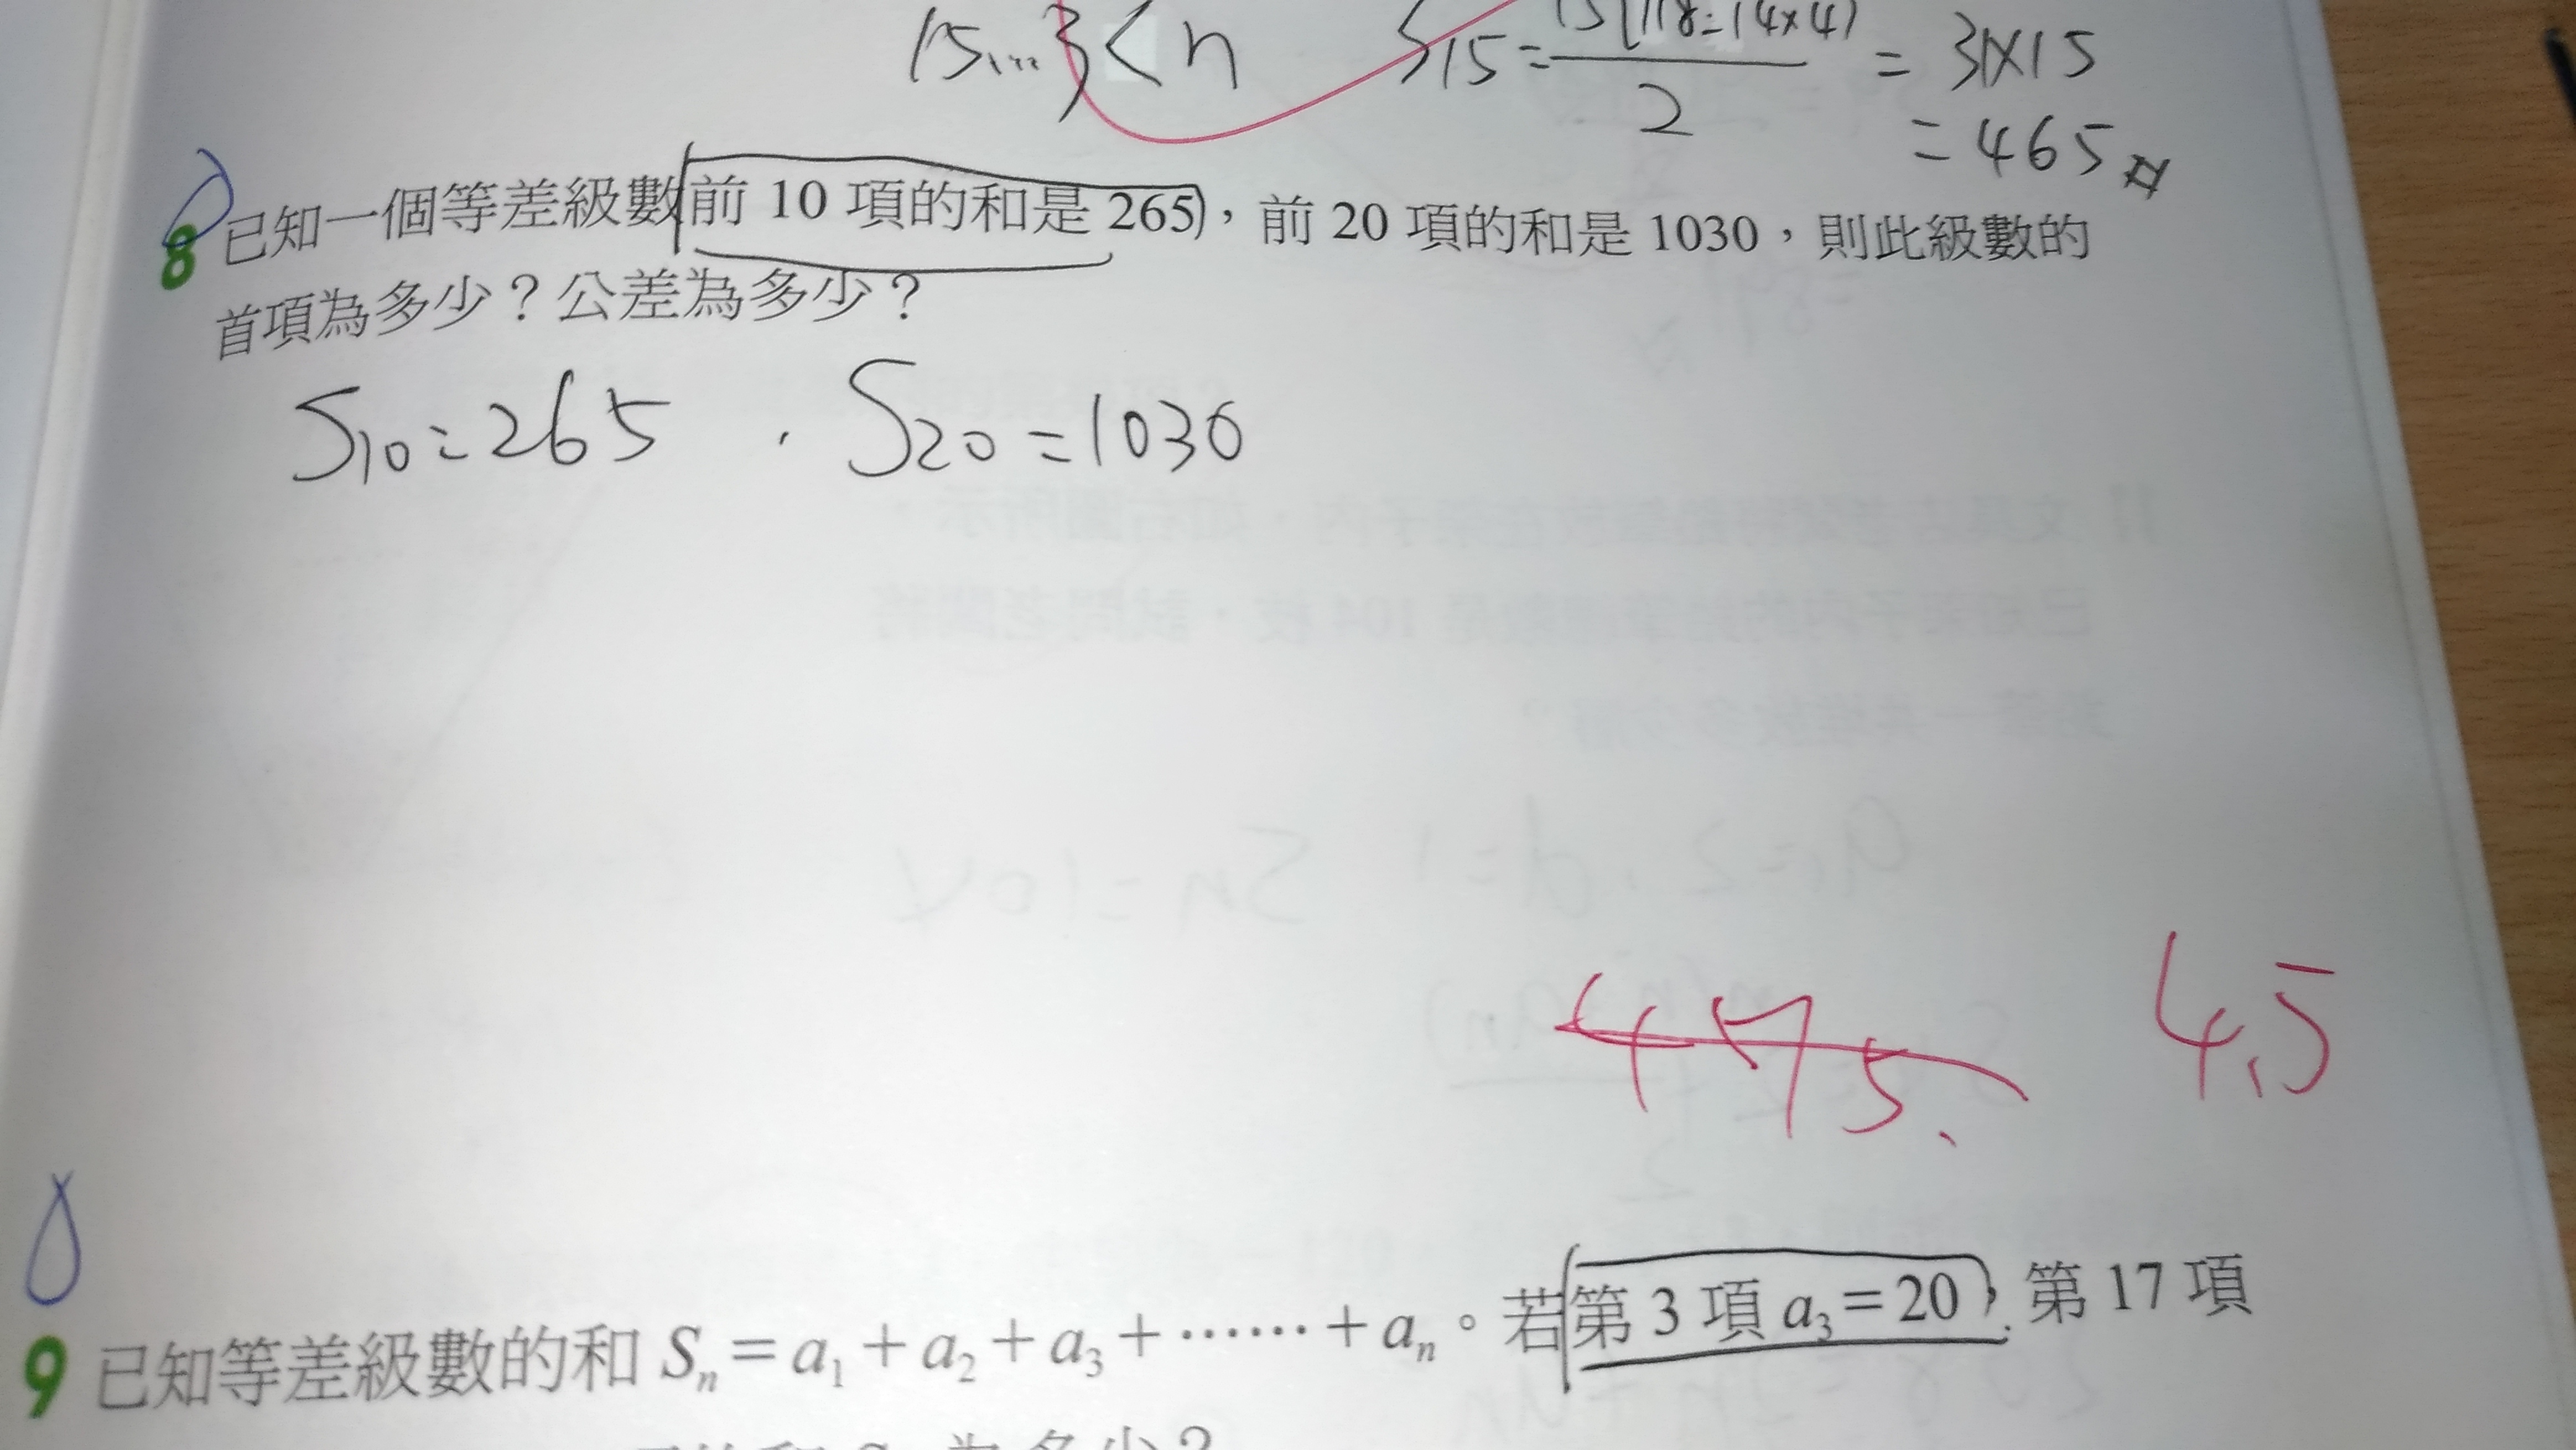 15...3 < n  S15 = 15(118=14×4) / 2 = 31×15
= 465
8 已知一個等差級數前 10 項的和是 265，前 20 項的和是 1030，則此級數的
首項為多少？公差為多少？
S10=265 . S20=1030
475. 4.5
9 已知等差級數的和 Sn = a1 + a2 + a3 + …… + an。若第 3 項 a3 = 20，第 17 項
為多少？